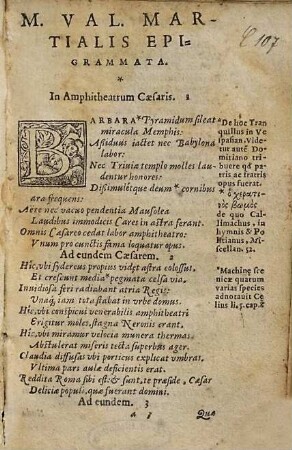 C 107
M. VAL. MAR-
TIALIS EPI-
GRAMMATA.
*
In Amphitheatrum Cæsaris. 1
BARBARA * Pyramidum sileat
miracula Memphis:
Assiduus iactet nec Babylona
labor:
Nec Triuiæ templo molles lau-
dentur honores:
Dissimulétque deum * cornibus
ara frequens:
Aëre nec vacuo pendentia Mausolea
Laudibus immodicis Cares in astra ferant.
Omnis Cæsareo cedat labor amphitheatro:
Vnum pro cunctis fama loquatur opus.
Ad eundem Cæsarem. 2
Hîc, vbi sydereus propius videt astra colossus,
Et crescunt media * pegmata celsa via.
Inuidiosa feri radiabant atria Regis:
Vnáq; iam tota stabat in vrbe domus.
Hîc, vbi conspicui venerabilis amphitheatri
Erigitur moles, stagna Neronis erant.
Hîc, vbi miramur velocia munera thermas,
Abstulerat miseris tecta superbus ager.
Claudia diffusas vbi porticus explicat vmbras,
Vltima pars aulæ deficientis erat.
Reddita Roma sibi est: & sunt, te præside, Cæsar
Deliciæ populi, quæ fuerant domini.
Ad eundem. 3
a 1 Quæ
* De hoc Tran
quillus in Ve
spasian. Vide-
tur autē Domi
tiano tribu
ere qđ pa-
tris ac fratris
opus fuerat.
* ὁ κερατι-
νὸς βωμὸς
de quo Calli-
machus, in
hymnis &
Politianus, Mi-
scellan. 52.
* Machinę sce
nicæ quarum
varias species
adnotauit Cæ-
lius li. 5. cap. 8